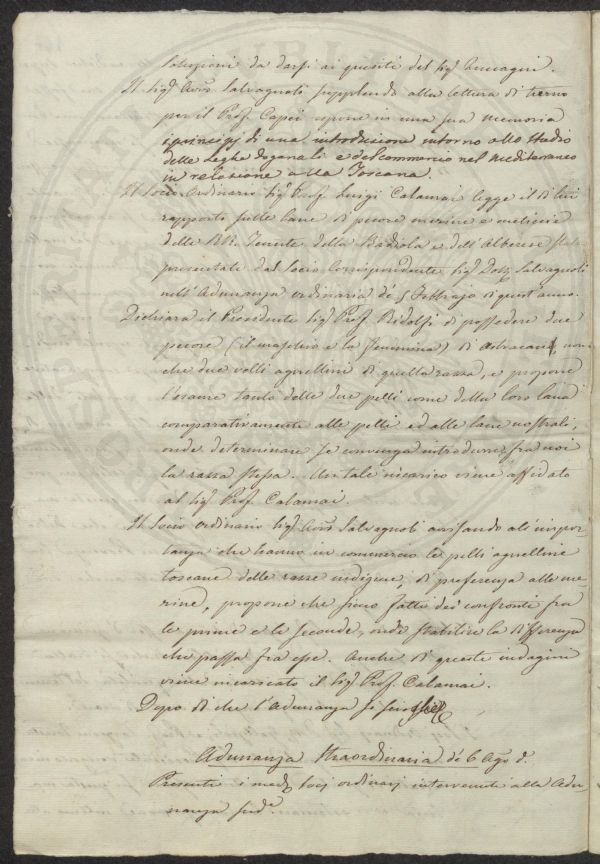 soluzioni da darsi ai quesiti del Sigr.
Il Sigr Avvo Salvagnoli supplendo alla lettura di turno
per il Prof. Capei espone in una sua memoria
i principj di una introduzione intorno allo studio
delle Leghe doganali e del commercio nel Mediterraneo
in relazione alla Toscana.
Il Socio ordinario Sigr Prof. Luigi Calamai legge il di lui
rapporto sulle lane di pecore merine e meticcie
delle RR. Tenute della Badiola e dell'Alberese state
presentate dal Socio Corrispondente Sigr Dott. Salvagnoli
nell'Adunanza ordinaria de' 5 Febbrajo di quest'anno.
Dichiara il Presidente Sigr Prof. Ridolfi di possedere due
pecore (il maschio e la femmina) di Astracan, non
che due velli agnellini di quella razza, e propone
l'esame tanto delle due pelli come della loro lana
comparativamente alle pelli ed alle lane nostrali,
onde determinare se convenga introdurre fra noi
la razza stessa. Un tale incarico viene affidato
al Sigr Prof. Calamai.
Il Socio ordinario Sigr Avvo Salvagnoli avvisando all'impor-
tanza che hanno in commercio le pelli agnelline
toscane delle razze indigene, di preferenza alle me-
rine, propone che sieno fatti dei confronti fra
le prime e le seconde, onde stabilire la differenza
che passa fra esse. Anche di queste indagini
viene incaricato il Sigr Prof. Calamai.
Dopo di che l'Adunanza si
Adunanza Straordinaria de' 6 Ago do
Presenti i medi Socj ordinarj intervenuti alla Adu-
nanza sudа.